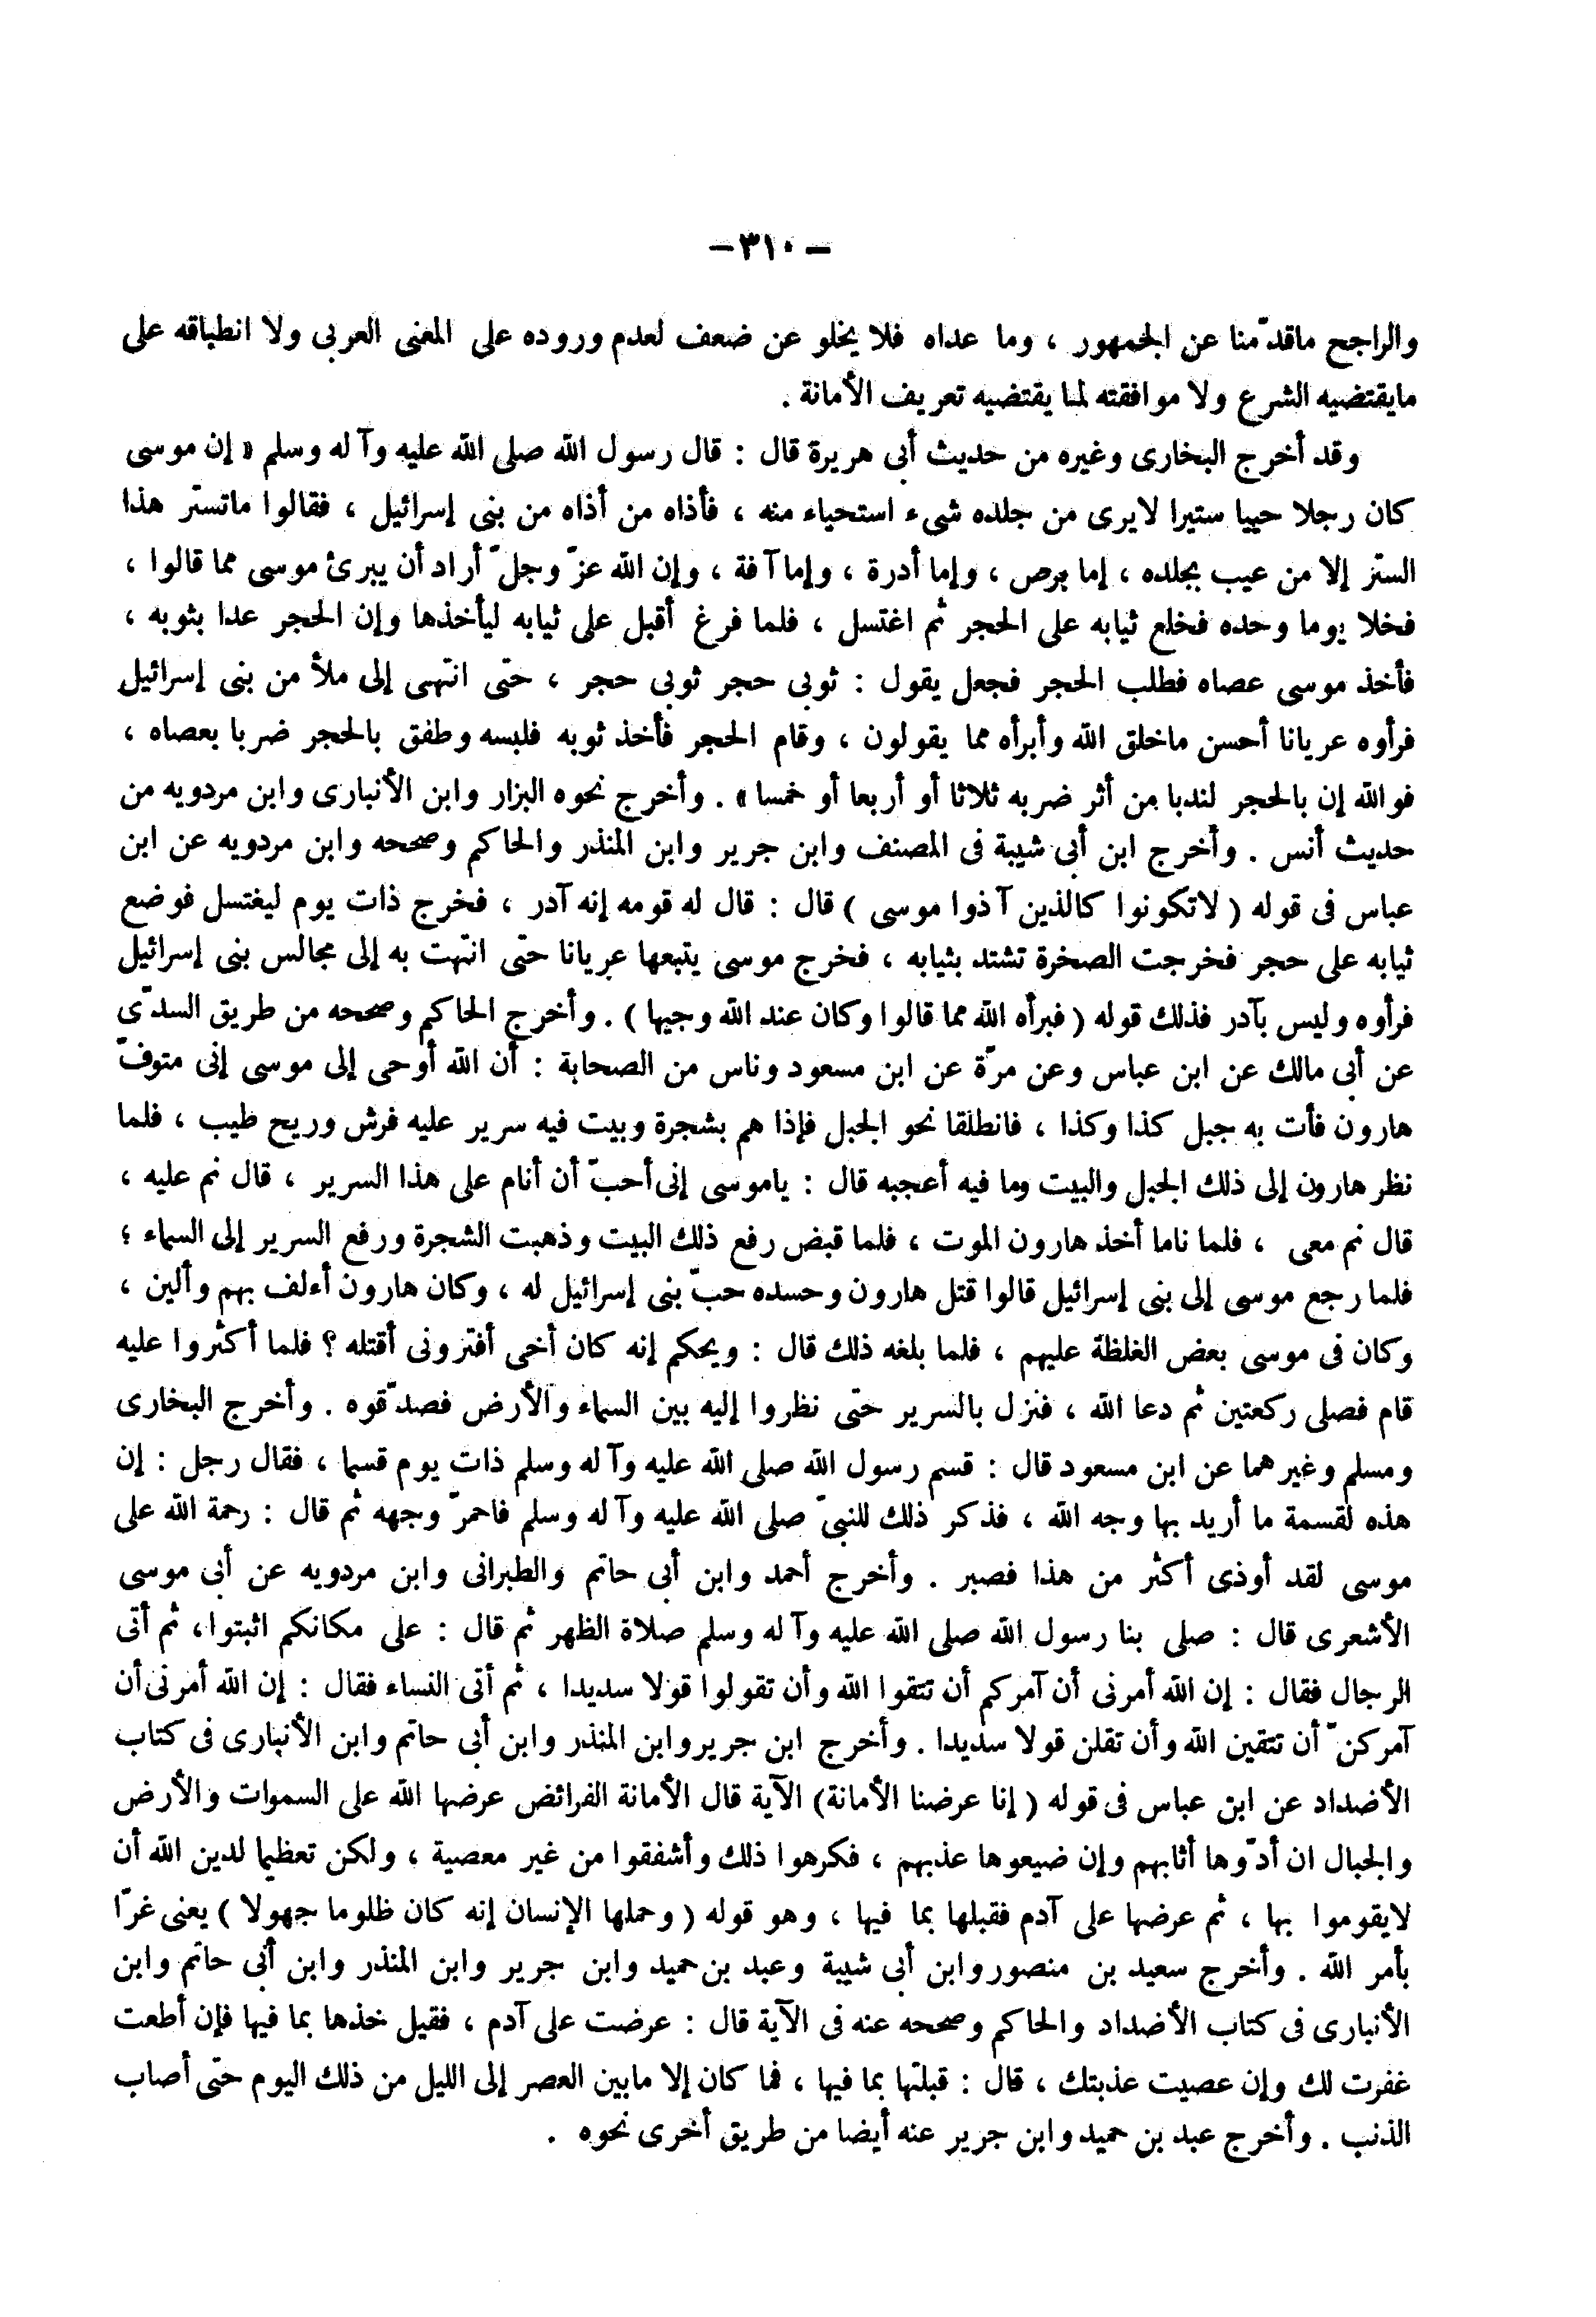 – ٣١٠ –
والراجح ماقدّمنا عن الجمهور ، وما عداه فلا يخلو عن ضعف لعدم وروده على المعنى العربى ولا انطباقه على
مايقتضيه الشرع ولا موافقته لما يقتضيه تعريف الأمانة .
وقد أخرج البخارى وغيره من حديث أبى هريرة قال : قال رسول الله صلى الله عليه وآله وسلم « إن موسى
كان رجلا حييا ستيرا لايرى من جلده شىء استحياء منه ، فأذاه من أذاه من بنى إسرائيل ، فقالوا ماتستّر هذا
الستر إلا من عيب بجلده ، إما برص ، وإما أدرة ، وإما آفة ، وإن الله عزّ وجلّ أراد أن يبرئ موسى مما قالوا ،
فخلا يوما وحده فخلع ثيابه على الحجر ثم اغتسل ، فلما فرغ أقبل على ثيابه ليأخذها وإن الحجر عدا بثوبه ،
فأخذ موسى عصاه فطلب الحجر فجعل يقول : ثوبى حجر ثوبى حجر ، حتى انتهى إلى ملأ من بنى إسرائيل
فرأوه عريانا أحسن ماخلق الله وأبرأه مما يقولون ، وقام الحجر فأخذ ثوبه فلبسه وطفق بالحجر ضربا بعصاه ،
فوالله إن بالحجر لندبا من أثر ضربه ثلاثا أو أربعا أو خمسا » . وأخرج نحوه البزار وابن الأنبارى وابن مردويه من
حديث أنس . وأخرج ابن أبى شيبة فى المصنف وابن جرير وابن المنذر والحاكم وصححه وابن مردويه عن ابن
عباس فى قوله ( لاتكونوا كالذين آذوا موسى ) قال : قال له قومه إنه آدر ، فخرج ذات يوم ليغتسل فوضع
ثيابه على حجر فخرجت الصخرة تشتد بثيابه ، فخرج موسى يتبعها عريانا حتى انتهت به إلى مجالس بنى إسرائيل
فرأوه وليس بآدر فذلك قوله ( فبرأه الله مما قالوا وكان عند الله وجيها ) . وأخرج الحاكم وصححه من طريق السدّى
عن أبى مالك عن ابن عباس وعن مرّة عن ابن مسعود وناس من الصحابة : أن الله أوحى إلى موسى إنى متوفّ
هارون فأت به جبل كذا وكذا ، فانطلقا نحو الجبل فإذا هم بشجرة وبيت فيه سرير عليه فرش وريح طيب ، فلما
نظر هارون إلى ذلك الجبل والبيت وما فيه أعجبه قال : ياموسى إنى أحبّ أن أنام على هذا السرير ، قال نم عليه ،
قال نم معى ، فلما ناما أخذ هارون الموت ، فلما قبض رفع ذلك البيت وذهبت الشجرة ورفع السرير إلى السماء ؛
فلما رجع موسى إلى بنى إسرائيل قالوا قتل هارون وحسده حبّ بنى إسرائيل له ، وكان هارون أءلف بهم وألين ،
وكان فى موسى بعض الغلظة عليهم ، فلما بلغه ذلك قال : ويحكم إنه كان أخى أفترونى أقتله ؟ فلما أكثروا عليه
قام فصلى ركعتين ثم دعا الله ، فنزل بالسرير حتى نظروا إليه بين السماء والأرض فصدّقوه . وأخرج البخارى
ومسلم وغيرهما عن ابن مسعود قال : قسم رسول الله صلى الله عليه وآله وسلم ذات يوم قسما ، فقال رجل : إن
هذه لقسمة ما أريد بها وجه الله ، فذكر ذلك للنبىّ صلى الله عليه وآله وسلم فاحمرّ وجهه ثم قال : رحمة الله على
موسى لقد أوذى أكثر من هذا فصبر . وأخرج أحمد وابن أبى حاتم والطبرانى وابن مردويه عن أبى موسى
الأشعرى قال : صلى بنا رسول الله صلى الله عليه وآله وسلم صلاة الظهر ثم قال : على مكانكم اثبتوا، ثم أتى
الرجال فقال : إن الله أمرنى أن آمركم أن تتقوا الله وأن تقولوا قولا سديدا ، ثم أتى النساء فقال : إن الله أمرنى أن
آمركنّ أن تتقين الله وأن تقلن قولا سديدا . وأخرج ابن جرير وابن المنذر وابن أبى حاتم وابن الأنبارى فى كتاب
الأضداد عن ابن عباس فى قوله ( إنا عرضنا الأمانة) الآية قال الأمانة الفرائض عرضها الله على السموات والأرض
والجبال ان أدّوها أثابهم وإن ضيعوها عذبهم ، فكرهوا ذلك وأشفقوا من غير معصية ، ولكن تعظيما لدين الله أن
لايقوموا بها ، ثم عرضها على آدم فقبلها بما فيها ، وهو قوله ( وحملها الإنسان إنه كان ظلوما جهولا ) يعنى غرّا
بأمر الله . وأخرج سعيد بن منصور وابن أبى شيبة وعبد بن حميد وابن جرير وابن المنذر وابن أبى حاتم وابن
الأنبارى فى كتاب الأضداد والحاكم وصححه عنه فى الآية قال : عرضت على آدم ، فقيل خذها بما فيها فإن أطعت
غفرت لك وإن عصيت عذبتك ، قال : قبلتها بما فيها ، فما كان إلا مابين العصر إلى الليل من ذلك اليوم حتى أصاب
الذنب . وأخرج عبد بن حميد وابن جرير عنه أيضا من طريق أخرى نحوه .